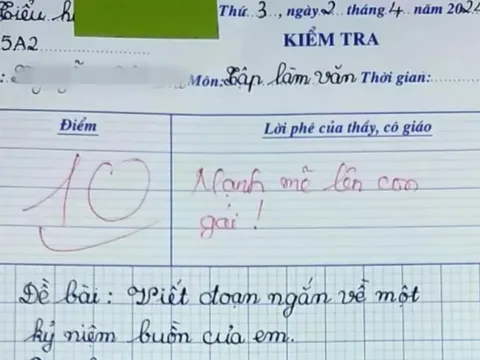 Tiểu h
Thứ 3, ngày 2 tháng 4 năm 2024
5A2
KIỂM TRA
Môn: Tập làm văn Thời gian:
Điểm
Lời phê của thầy, cô giáo
10
Mạnh mẽ lên con
gái!
Đề bài: Viết đoạn ngắn về một
kỷ niệm buồn của em.